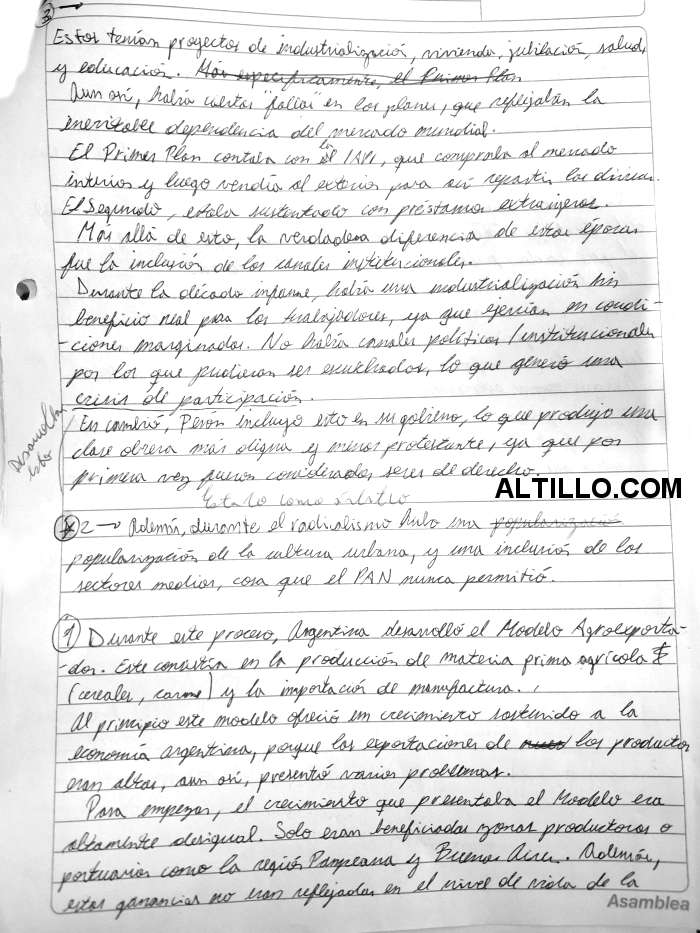 3 →
Estos tenían proyectos de industrialización, vivienda, jubilación, salud
y educación. Más específicamente, el Primer Plan
Aun así, había ciertas "fallas" en los planes, que reflejaban la
inevitable dependencia del mercado mundial.
El Primer Plan contaba con el la IAPI, que compraba al mercado
interior y luego vendía al exterior para así repartir las divisas.
El Segundo, estaba sustentado con préstamos extranjeros.
Más allá de esto, la verdadera diferencia de estas épocas
fue la inclusión de los canales institucionales.
Durante la década infame, había una industrialización sin
beneficio real para los trabajadores, ya que ejercían en condi-
-ciones marginadas. No había canales políticos / institucionales
por los que pudieran ser escuchados, lo que generó una
crisis de participación.
En cambio, Perón incluyo esto en su gobierno, lo que produjo una
clase obrera más digna y menos protestante, ya que por
primera vez fueron considerados seres de derecho.
Desarrollar
esto
Estado como árbitro
ALTILLO.COM
* 2 → Además, durante el radicalismo hubo una popularizació
popularización de la cultura urbana, y una inclusión de los
sectores medios, cosa que el PAN nunca permitió.
1 Durante este proceso, Argentina desarrolló el Modelo Agroexporta-
-dor. Este consistía en la producción de materia prima agrícola
(cereales, carne) y la importación de manufactura.
Al principio este modelo ofreció un crecimiento sostenido a la
economía argentina, porque las exportaciones de los productos
eran altas, aun así, presentó varios problemas.
Para empezar, el crecimiento que presentaba el Modelo era
altamente desigual. Solo eran beneficiadas zonas productoras o
portuarias como la región Pampeana y Buenos Aires. Además,
estas ganancias no eran reflejadas en el nivel de vida de la
Asamblea